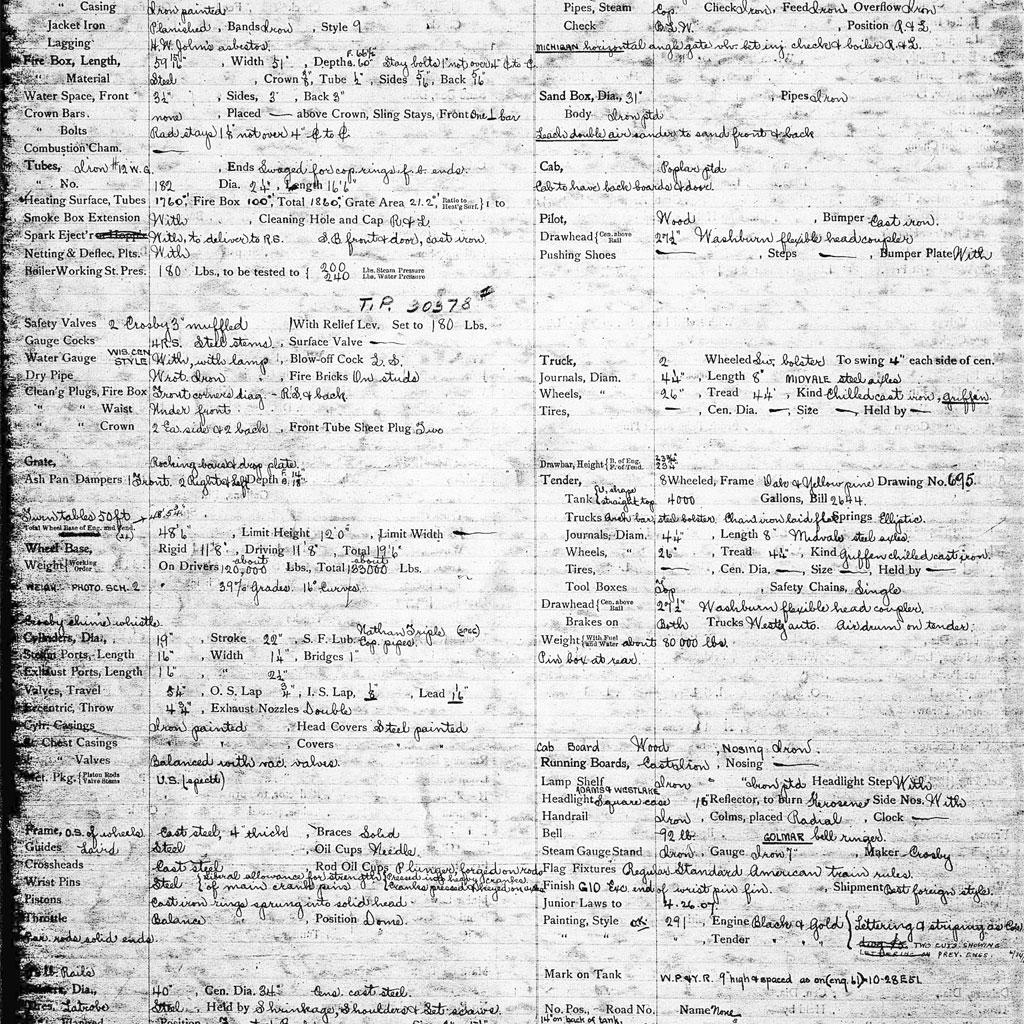 Casing Iron painted
Jacket Iron Planished , Bands Iron , Style 9
Lagging H.W. John's asbestos.
Fire Box, Length, 59 15/16" , Width 51" , Depth F. 66¾ B. 60" Stay bolts 1" not over 4" C to C.
" Material Steel , Crown ⅜, Tube ½, Sides 5/16, Back 5/16
Water Space, Front 3½" , Sides, 3" , Back 3"
Crown Bars. none , Placed — above Crown, Sling Stays, Front One L bar
" Bolts Rad stays 1⅛" not over 4" C to C.
Combustion Cham. —
Tubes, Iron #12 W.G. , Ends Swaged for cop. rings f.b. ends.
" No. 182 Dia. 2¼", Length 16'6"
Heating Surface, Tubes 1760, Fire Box 100, Total 1860, Grate Area 21.2, Ratio to Heat'g Surf. } 1 to
Smoke Box Extension With , Cleaning Hole and Cap R & L.
Spark Eject'r With, to deliver to R.S. S.B. front & door, cast iron.
Netting & Deflec. Plts. With
Boiler Working St. Pres. 180 Lbs., to be tested to { 200 Lbs. Steam Pressure 240 Lbs. Water Pressure
T.P. 30378
Safety Valves 2 Crosby 3" muffled 1 With Relief Lev. Set to 180 Lbs.
Gauge Cocks 4 R.S. Steel stems , Surface Valve —
Water Gauge WIS. CEN. STYLE With, with lamp , Blow-off Cock L.S.
Dry Pipe Wrot. Iron , Fire Bricks On studs
Clean'g Plugs, Fire Box Front corners diag. - R.S. & back
" " Waist Under front
" " Crown 2 Ea. side & 2 back , Front Tube Sheet Plug Two
Grate, Rocking bars & drop plate.
Ash Pan Dampers 1 Front. 2 Right & left Depth
Turntables 50 ft
Total Wheel Base of Eng. and Tend. 48'6" , Limit Height 12'0" , Limit Width —
Wheel Base, Rigid 11'8", Driving 11'8", Total 19'6"
Weight { Working Order On Drivers about 120,000 Lbs., Total about 133000 Lbs.
WEIGH. PHOTO. SCH. 2 3.9% Grades. 16° Curves.
Crosby chime whistle.
Cylinders, Dia., 19" , Stroke 22" , S. F. Lub. Nathan Triple (SPEC) Cop. pipes.
Steam Ports, Length 16" , Width 1¼" , Bridges 1"
Exhaust Ports, Length 16" , " 2½"
Valves, Travel 5½" , O. S. Lap ¾" , I. S. Lap, ⅛ , Lead 1/16"
Eccentric, Throw , Exhaust Nozzles Double
Cylr. Casings Iron painted , Head Covers Steel painted
St. Chest Casings " " , Covers " "
" Valves Balanced with vac. valves.
Met. Pkg. { Piston Rods Valve Stems U.S. (spec'l)
Frame, O.S. of wheels Cast steel, 4" thick , Braces Solid
Guides Laird Steel , Oil Cups Needle.
Crossheads Cast steel Rod Oil Cups Plunger, forged on rods
Wrist Pins Steel
Pistons Cast iron rings sprung into solid head
Throttle Balance , Position Dome.
Par. rods solid ends.
Rails
Dia., 40" , Cen. Dia. 34" Cen. cast steel.
Tires, Latrobe Steel , Held by Shrinkage, Shoulders & Set screws.
Flanged Position
Pipes, Steam Cop. Check Iron, Feed Iron Overflow Iron
Check B.L.W. , Position R. & L.
MICHIGAN horizontal angle gate vlv. bet. inj. check & boiler R. & L.
Sand Box, Dia., 31" , Pipes Iron
Body Iron ptd
Leach double air sander to sand front & back
Cab, Poplar ptd
Cab to have back boards & door.
Pilot, Wood , Bumper Cast iron.
Drawhead { Cen. above Rail 27½" Washburn flexible head coupler
Pushing Shoes — , Steps — , Bumper Plate With
Truck, 2 Wheeled Sw. bolster To swing 4" each side of cen.
Journals, Diam. 4¼" , Length 8" MIDVALE steel axles
Wheels, " 26" , Tread 4¼" , Kind Chilled cast iron, Griffin.
Tires, — , Cen. Dia. — , Size — , Held by —
Drawbar, Height { B. of Eng. F. of Tend.
Tender, 8 Wheeled, Frame Oak & Yellow pine Drawing No. 695.
Tank { U. shape straight top 4000 Gallons, Bill 2644.
Trucks Arch bar, steel bolster. Chan iron laid flat Springs Elliptic.
Journals, Diam. 4¼" , Length 8" Midvale steel axles.
Wheels, " 26" , Tread 4¼" , Kind Griffin chilled cast iron.
Tires, — , Cen. Dia. — , Size — , Held by —
Tool Boxes Top , Safety Chains, Single
Drawhead { Cen. above Rail 27½" Washburn flexible head coupler.
Brakes on Both Trucks Westg. auto. Air drum on tender.
Weight { With Fuel and Water about 80000 lbs.
Pin box at rear.
Cab Board Wood , Nosing Iron.
Running Boards, Cast Iron , Nosing —
Lamp Shelf Iron " Iron ptd Headlight Step With
Headlight ADAMS & WESTLAKE Square case 18" Reflector, to burn Kerosene Side Nos. With
Handrail Iron , Colms, placed Radial , Clock —
Bell 92 lb. GOLMAR bell ringer.
Steam Gauge Stand Iron , Gauge Iron 7" , Maker Crosby
Flag Fixtures Regular Standard American train rules.
Finish G10 Exc. end of wrist pin fin. , Shipment Best foreign style.
Junior Laws to 4.26.07
Painting, Style OK. 291 , Engine Black & Gold { Lettering & striping as
" " " Tender " " TWO CUTS SHOWING
ON PREV. ENGS.
Mark on Tank W.P. & Y.R. 9" high & spaced as on (eng. 61) 10-28 E51
No. Pos., Road No. Name None
14" on back of tank.